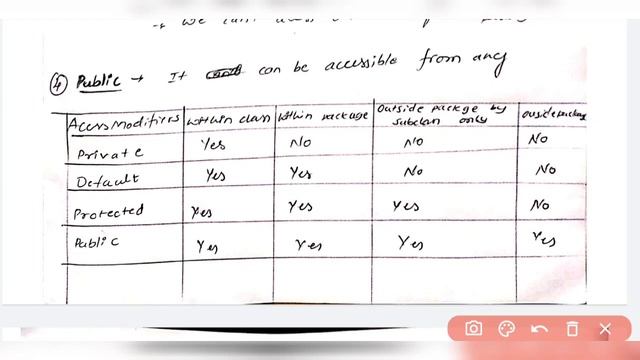 ④ Public → It can be accessible from any
Access Modifiers within class within package Outside package by subclass only outside package
Private Yes No No No
Default Yes Yes No No
Protected Yes Yes Yes No
Public Yes Yes Yes Yes